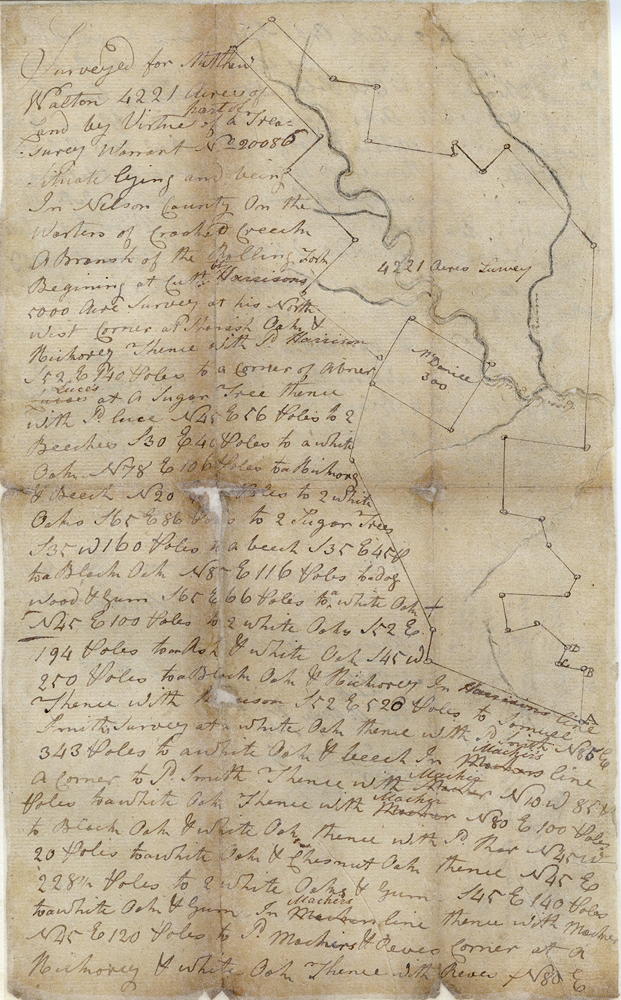 Surveyed for Matthew
Walton 4221 Acres of
part of
Land by Virtue of a Trea=
surey Warrant No 20086
situate lying and being
In Nelson County On the
Warters of Crooked Creeck
A Branch of the Rolling Fork
Begining at Cuth Harrisons
5000 Acre Survey at his North
West Corner at Spanish Oak &
Hickorey Thence with sd Harrison
S52 E 740 Poles to a corner of Abner
Luce's
at A Sugar Tree thence
with sd luce N45 E 56 Poles to 2
Beeches S30 E 40 Poles to a white
Oak N78 E 106 Poles to a Hickorey
& Beech N20 Poles to 2 white
Oaks S65 E 86 Poles to 2 Sugar Trees
S35 W 160 Poles to a beech S35 E 45 P
to a Black Oak N85 E 116 Poles to a dog
wood & Gum S65 E 66 Poles to a white Oak
N45 E 100 Poles to 2 white Oaks S52 E
194 Poles to an Ash & white Oak S45 W
250 Poles to a Black Oak & Hickorey In Harrisons line
Thence with Harrison S52 E 520 Poles to Samuel
Smiths Survey at a white Oak thence with sd Smith N85 E
343 Poles to a white Oak & beech In Machirs line
A corner to sd Smith Thence with Machir N10 W 85
Poles to a white Oak Thence with Machir N80 E 100 Poles
to Black Oak & white Oak thence with sd N45 W
20 Poles to a white Oak & Chesnut Oak thence N45 E
228 Poles to 2 white Oaks & Gum S45 E 140 Poles
to a white Oak & Gum In Machirs line thence with Machir
N45 E 120 Poles to sd Machirs & Reves Corner at a
Hickorey & white Oak Thence with Reves N80 E
4221 Acres Survey
McDaniel
300